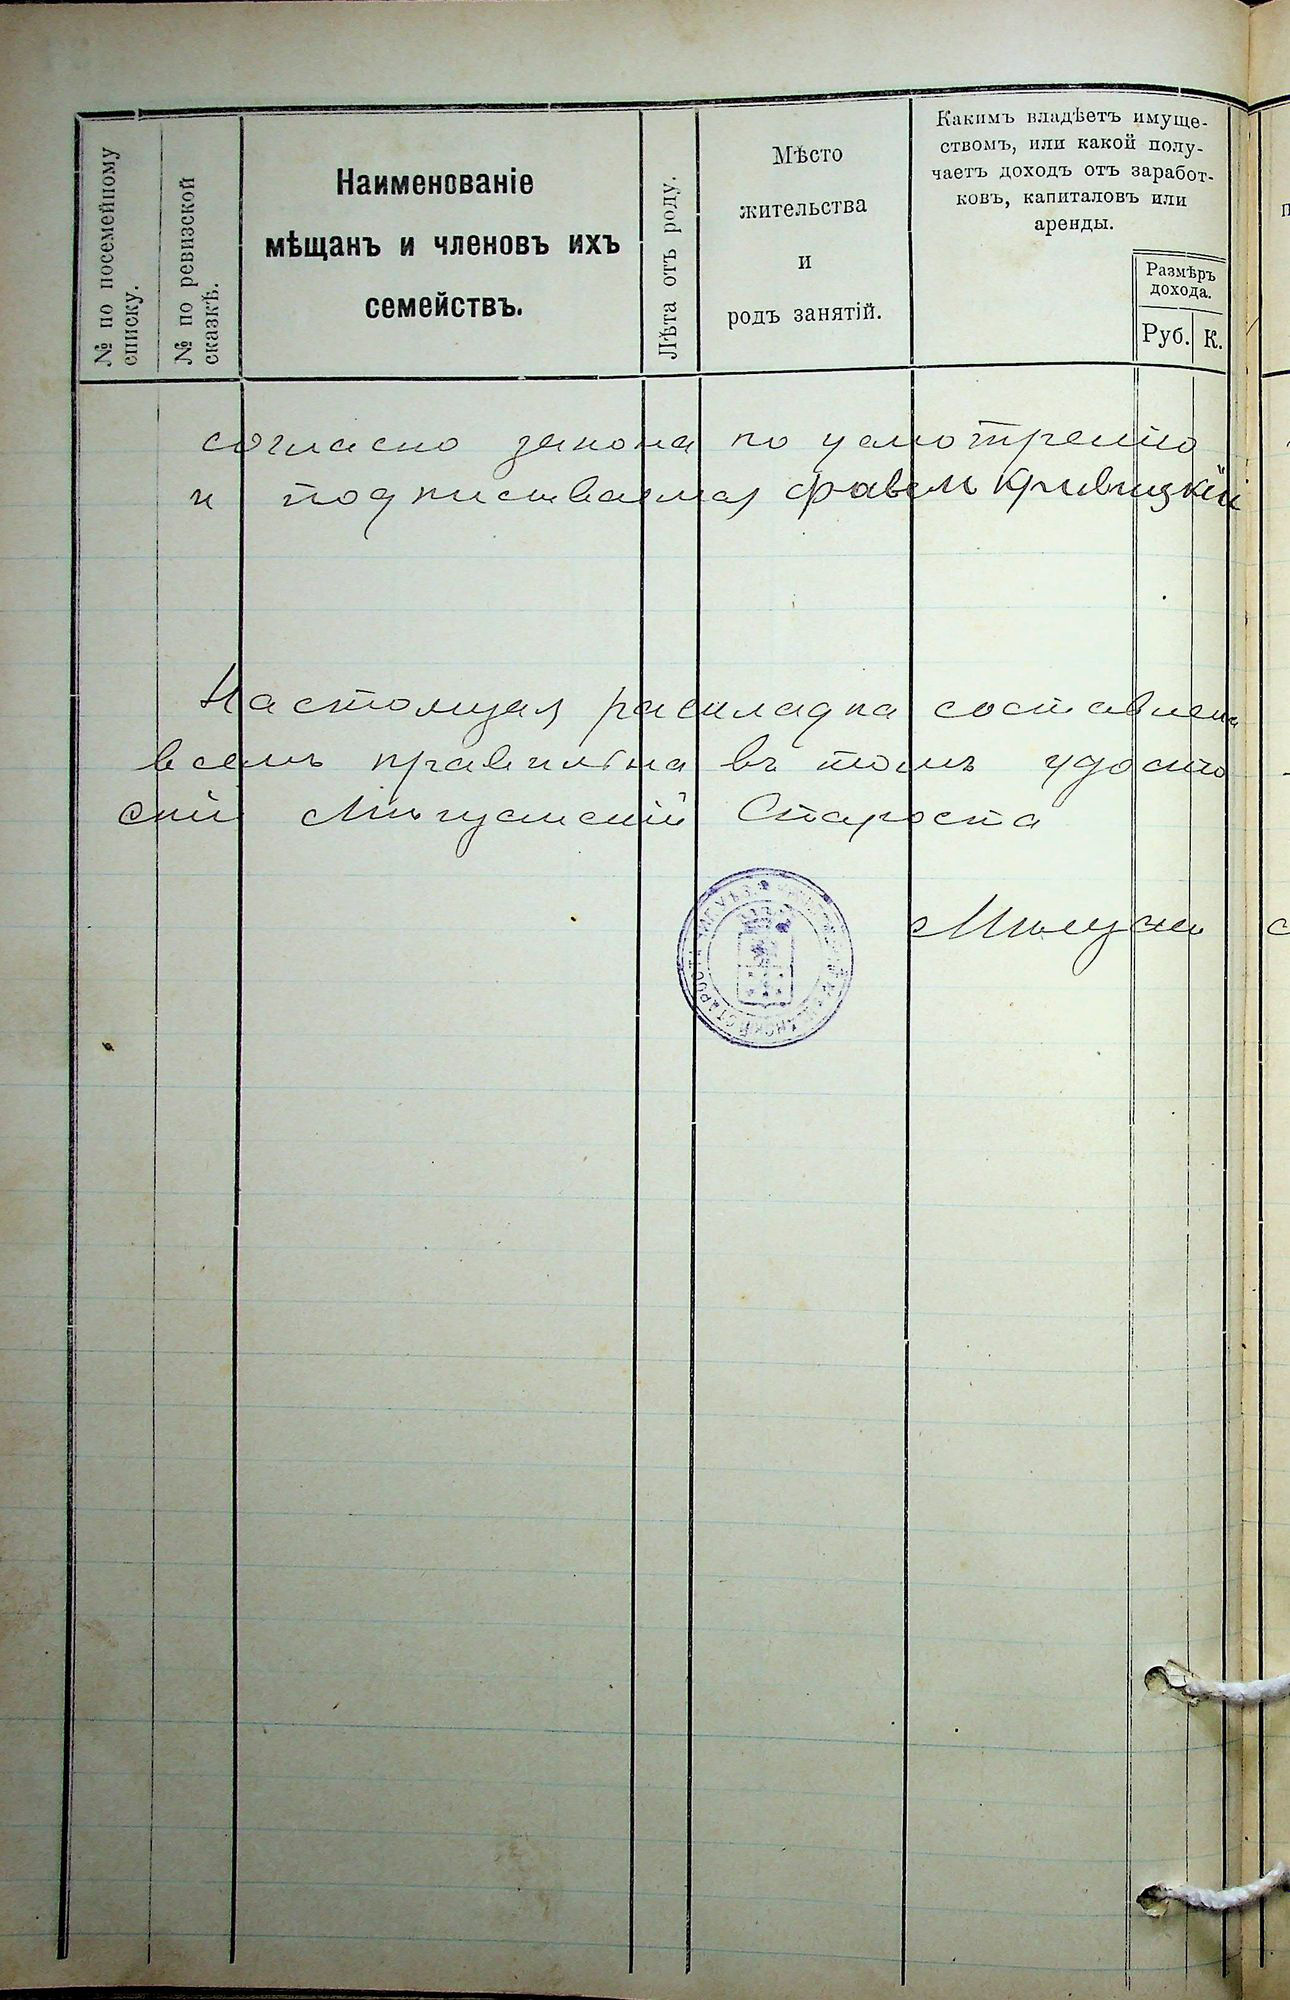 № по посемейному
списку.
№ по ревизской
сказкѣ.
Наименованіе
мѣщанъ и членовъ ихъ
семействъ.
Лѣта отъ роду.
Мѣсто
жительства
и
родъ занятій.
Какимъ владѣетъ имуще-
ствомъ, или какой полу-
чаетъ доходъ отъ заработ-
ковъ, капиталовъ или
аренды.
Размѣръ
дохода.
Руб.
К.
согласно закона по усмотренію
и подписываемся Кривицкій
Настоящая раскладка составлена
всемъ правильна въ томъ удосто
скій Староста